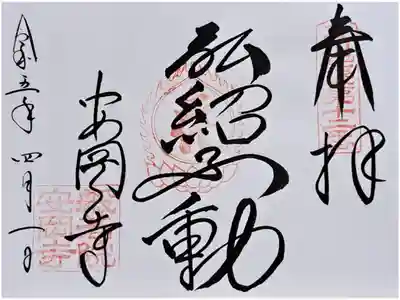 奉拝
弘紹不動
安岡寺
令和五年 四月一日